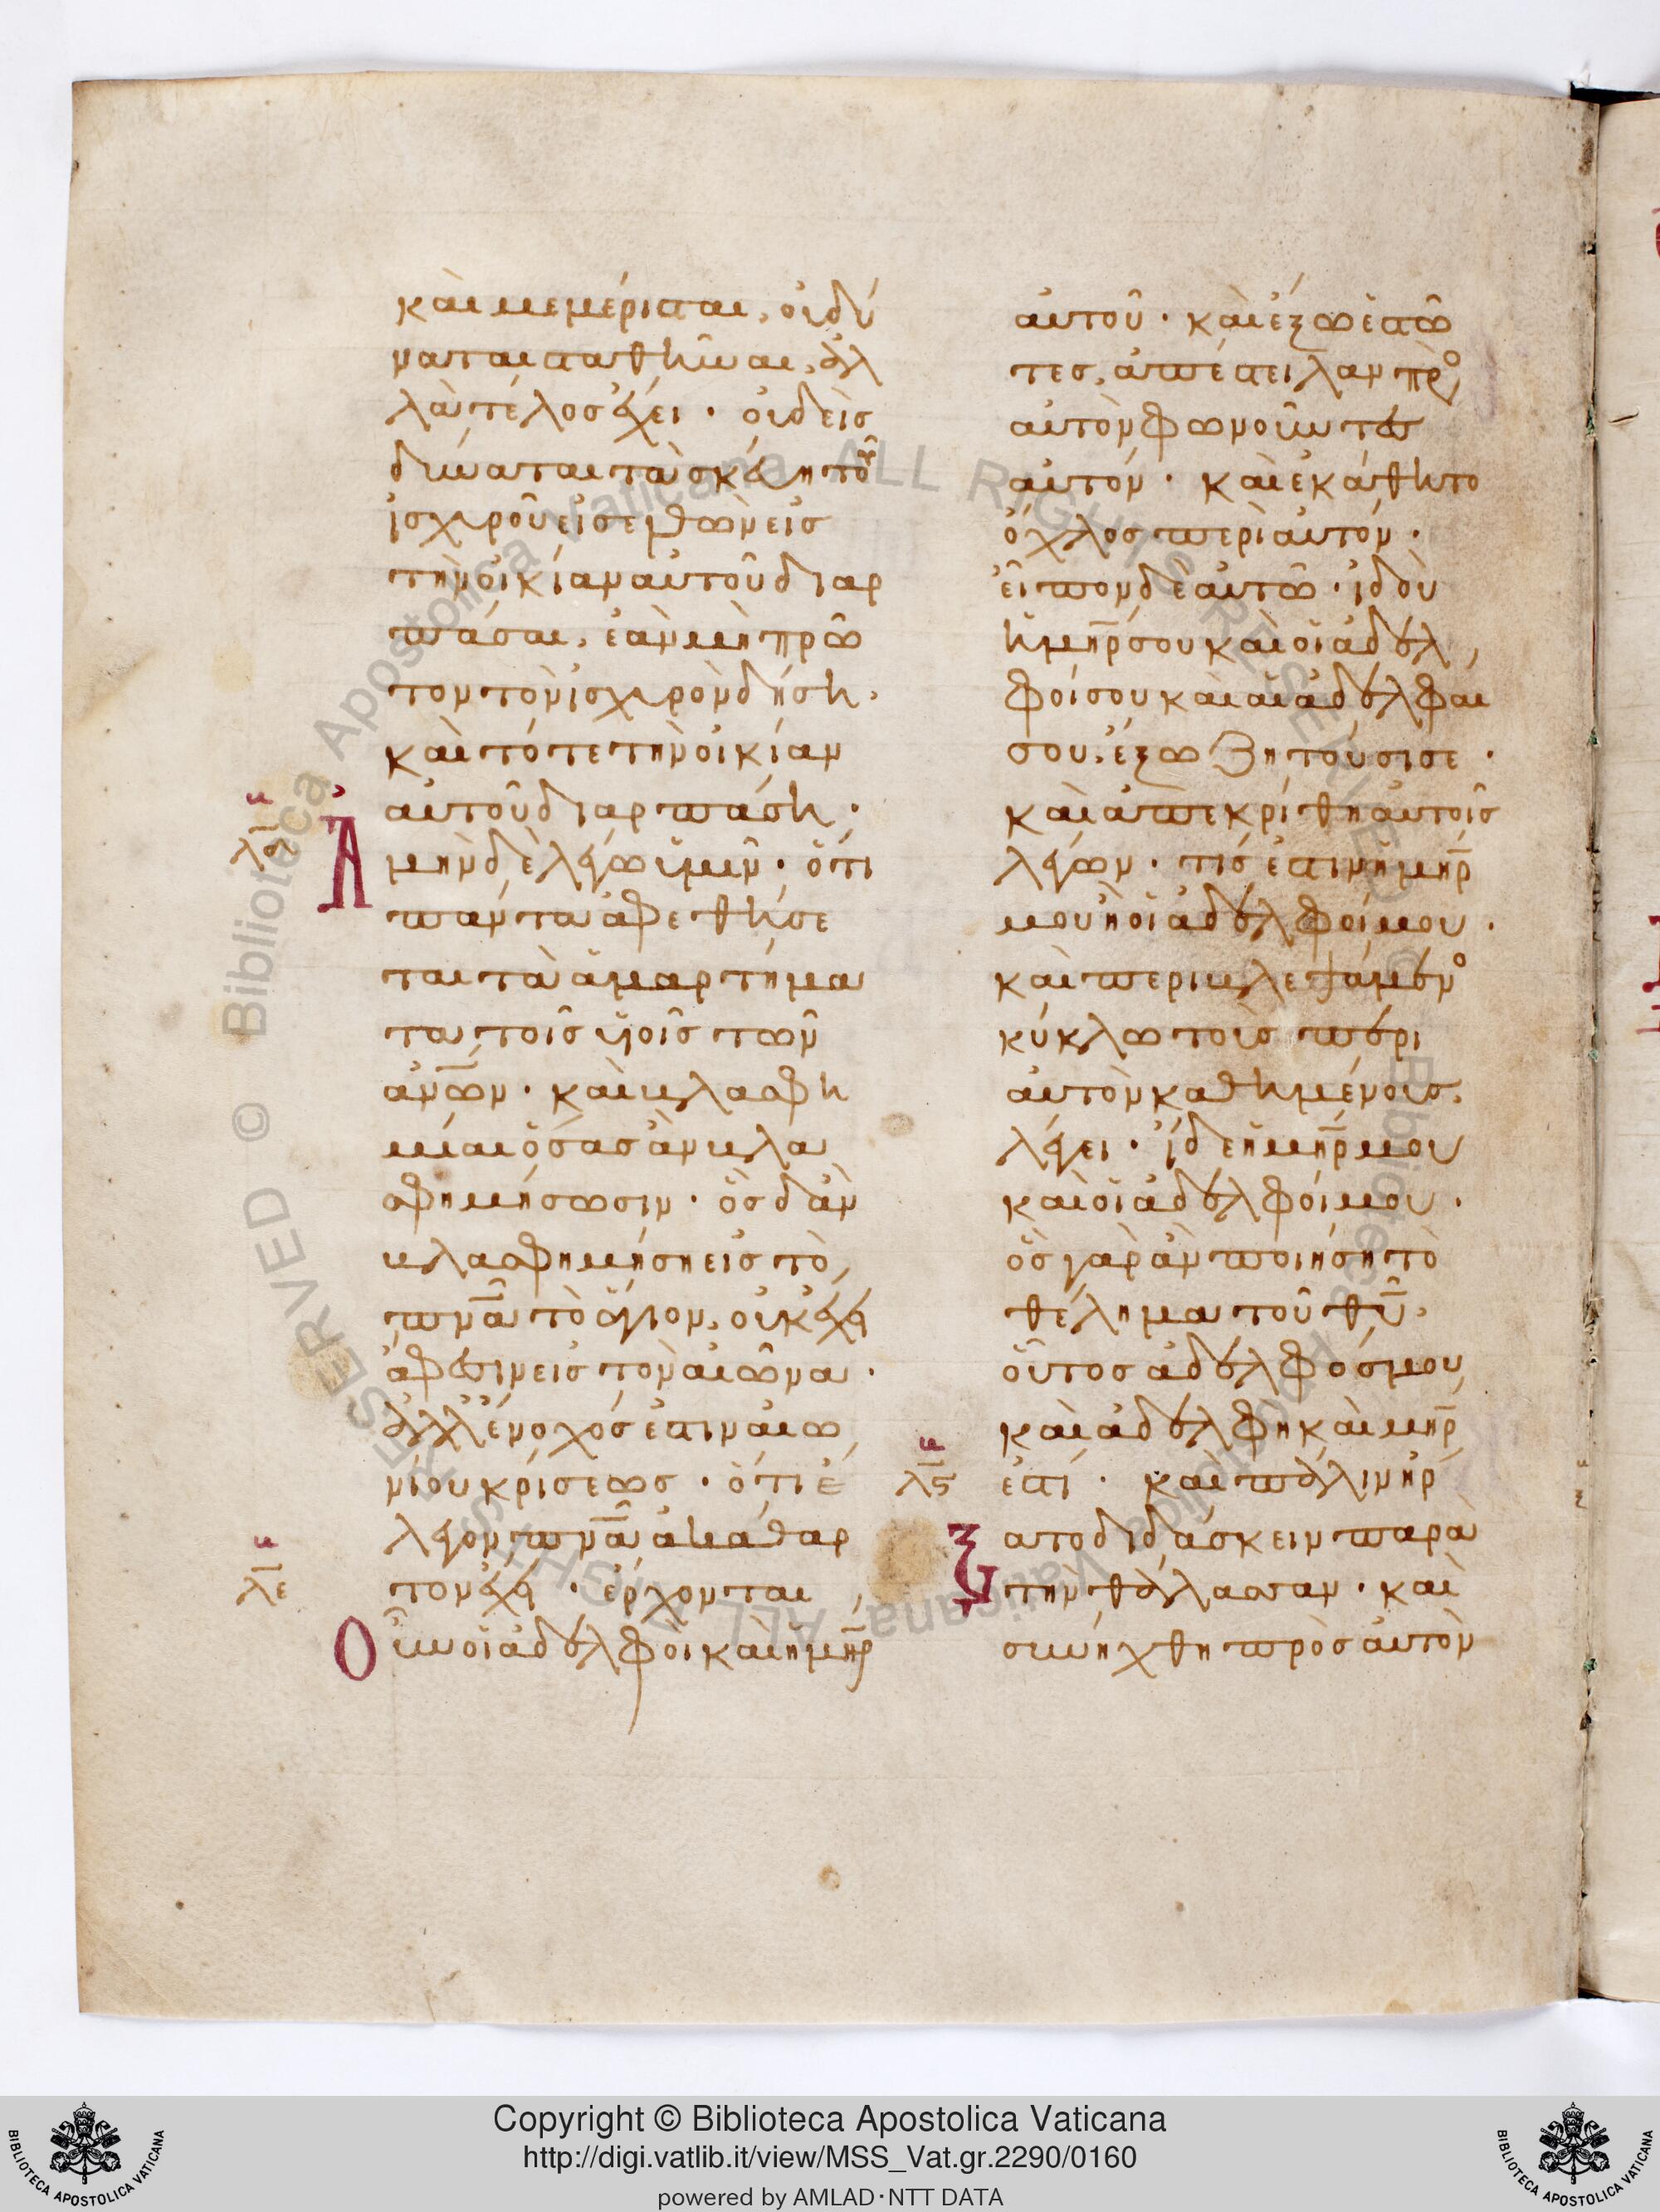 καὶ μεμέρισται, οὐ δύ
ναται σταθῆναι, ἀλ
λὰ τέλος ἔχει · οὐδεὶς
δύναται τὰ σκεύη τοῦ
ἰσχυροῦ εἰσελθὼν εἰς
τὴν οἰκίαν αὐτοῦ διαρ
πάσαι, ἐὰν μὴ πρῶ
τον τὸν ἰσχυρὸν δήση,
καὶ τότε τὴν οἰκίαν
αὐτοῦ διαρπάση ·
λδ Ἀ
μὴν δὲ λέγω ὑμῖν · ὅτι
πάντα ἀφεθήσε
ται τὰ ἁμαρτήμα
τα τοῖς υἱοῖς τῶν
ἀν̅ω̅ν · καὶ βλασφη
μίαι ὅσας ἂν βλα
σφημήσωσιν · ὃς δ ἂν
βλασφημήση εἰς τὸ
πν̅α̅ τὸ ἅγιον, οὐκ ἔχει
ἄφεσιν εἰς τὸν αἰῶνα ·
ἀλλ ἔνοχός ἐστιν αἰω
νίου κρίσεως · ὅτι ἔ
λεγον πν̅α̅ ἀκάθαρ
λε τον ἔχει · ἔρχονται
Οὖν οἱ ἀδελφοὶ καὶ ἡ μη̅ρ̅
αὐτοῦ · καὶ ἔξω ἑστῶ
τες, ἀπέστειλαν πρὸ
αὐτὸν φωνοῦντες
αὐτόν · καὶ ἐκάθητο
ὄχλος περὶ αὐτόν ·
εἶπον δὲ αὐτῶ · ἰδοὺ
ἡ μη̅ρ̅ σου καὶ οἱ ἀδελ
φοί σου καὶ αἱ ἀδελφαι
σου, ἔξω ζητοῦσι σε ·
καὶ ἀπεκρίθη αὐτοῖς
λέγων · τίς ἐστιν ἡ μη̅ρ̅
μου ἢ οἱ ἀδελφοί μου ·
καὶ περιβλεψάμενο
κύκλω τοὺς περι
αὐτὸν καθημένους,
λέγει · ἴδε ἡ μη̅ρ̅ μου
καὶ οἱ ἀδελφοί μου ·
ὃς γὰρ ἂν ποιήση τὸ
θέλημα τοῦ θ̅υ̅,
οὗτος ἀδελφός μου
καὶ ἀδελφὴ καὶ μη̅ρ̅
λϛ ἐστί · καὶ πάλιν ἤρ
ξατο διδάσκειν παρὰ
τὴν θάλασσαν · καὶ
συνήχθη πρὸς αὐτὸν
Copyright © Biblioteca Apostolica Vaticana
http://digi.vatlib.it/view/MSS_Vat.gr.2290/0160
powered by AMLAD·NTT DATA
BIBLIOTECA APOSTOLICA VATICANA
BIBLIOTECA APOSTOLICA VATICANA